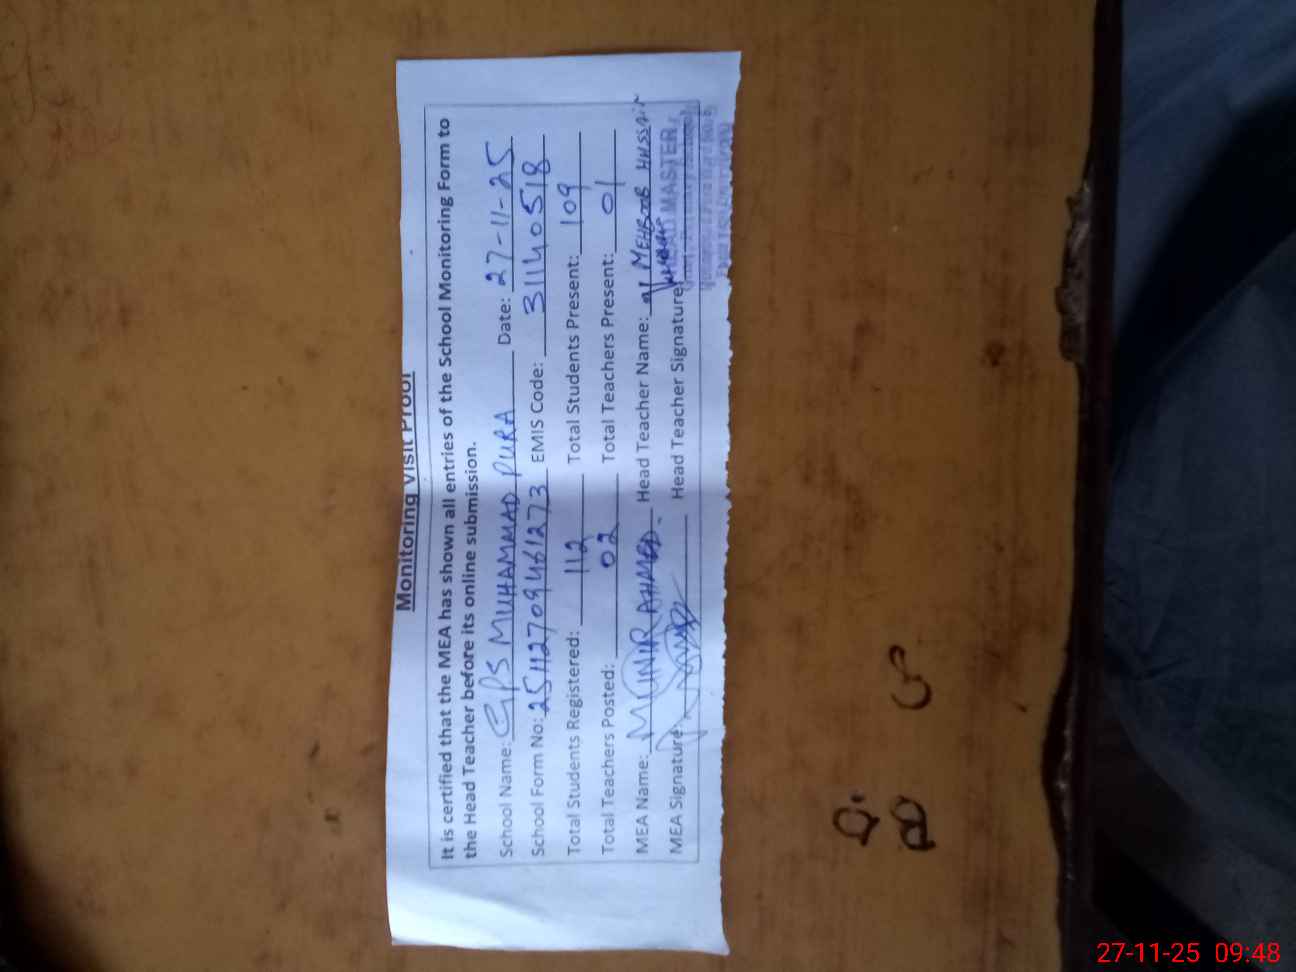 Monitoring Visit Proof
It is certified that the MEA has shown all entries of the School Monitoring Form to
the Head Teacher before its online submission.
School Name: GPS MUHAMMAD PURA Date: 27-11-25
School Form No: 251127094461273 EMIS Code: 31140518
Total Students Registered: 112 Total Students Present: 109
Total Teachers Posted: 02 Total Teachers Present: 01
MEA Name: MUNIR AHMED. Head Teacher Name: MEHBOOB HUSSAIN
MEA Signature: Head Teacher Signature:
HEAD MASTER
27-11-25 09:48